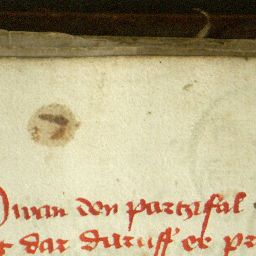 wan den partzifal
dar daruff er pr